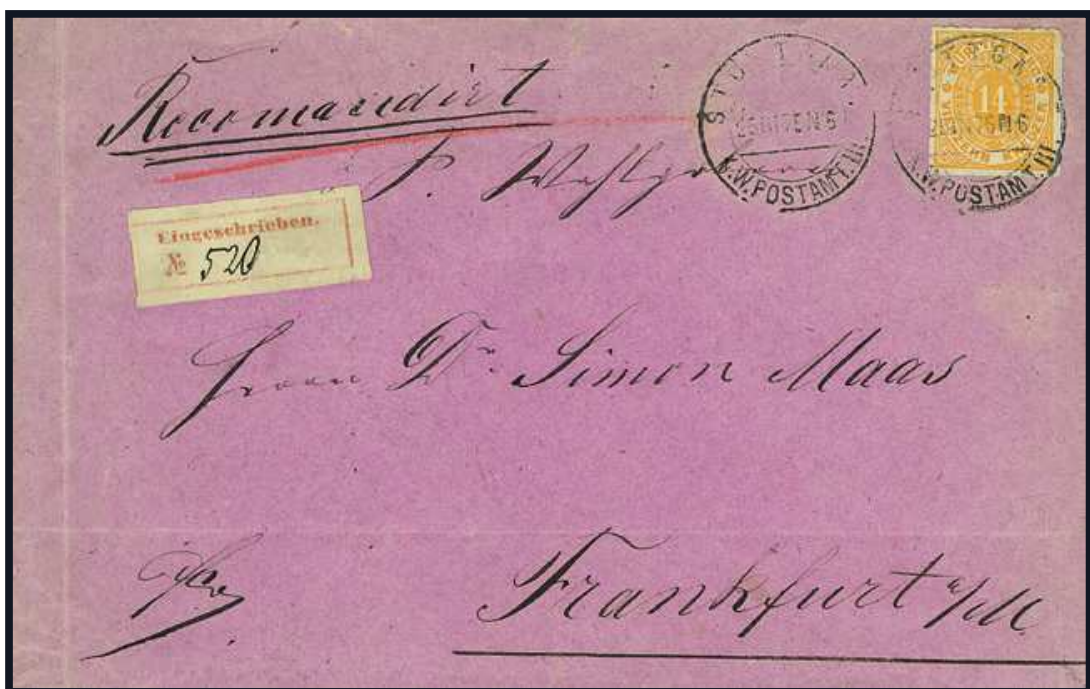 Recomandirt
STUTTGART
K.W.POSTAMT.III.
14
K.W.POSTAMT.III.
Eingeschrieben.
№ 520
Herrn Dr. Simon Maas
Frankfurt a/M